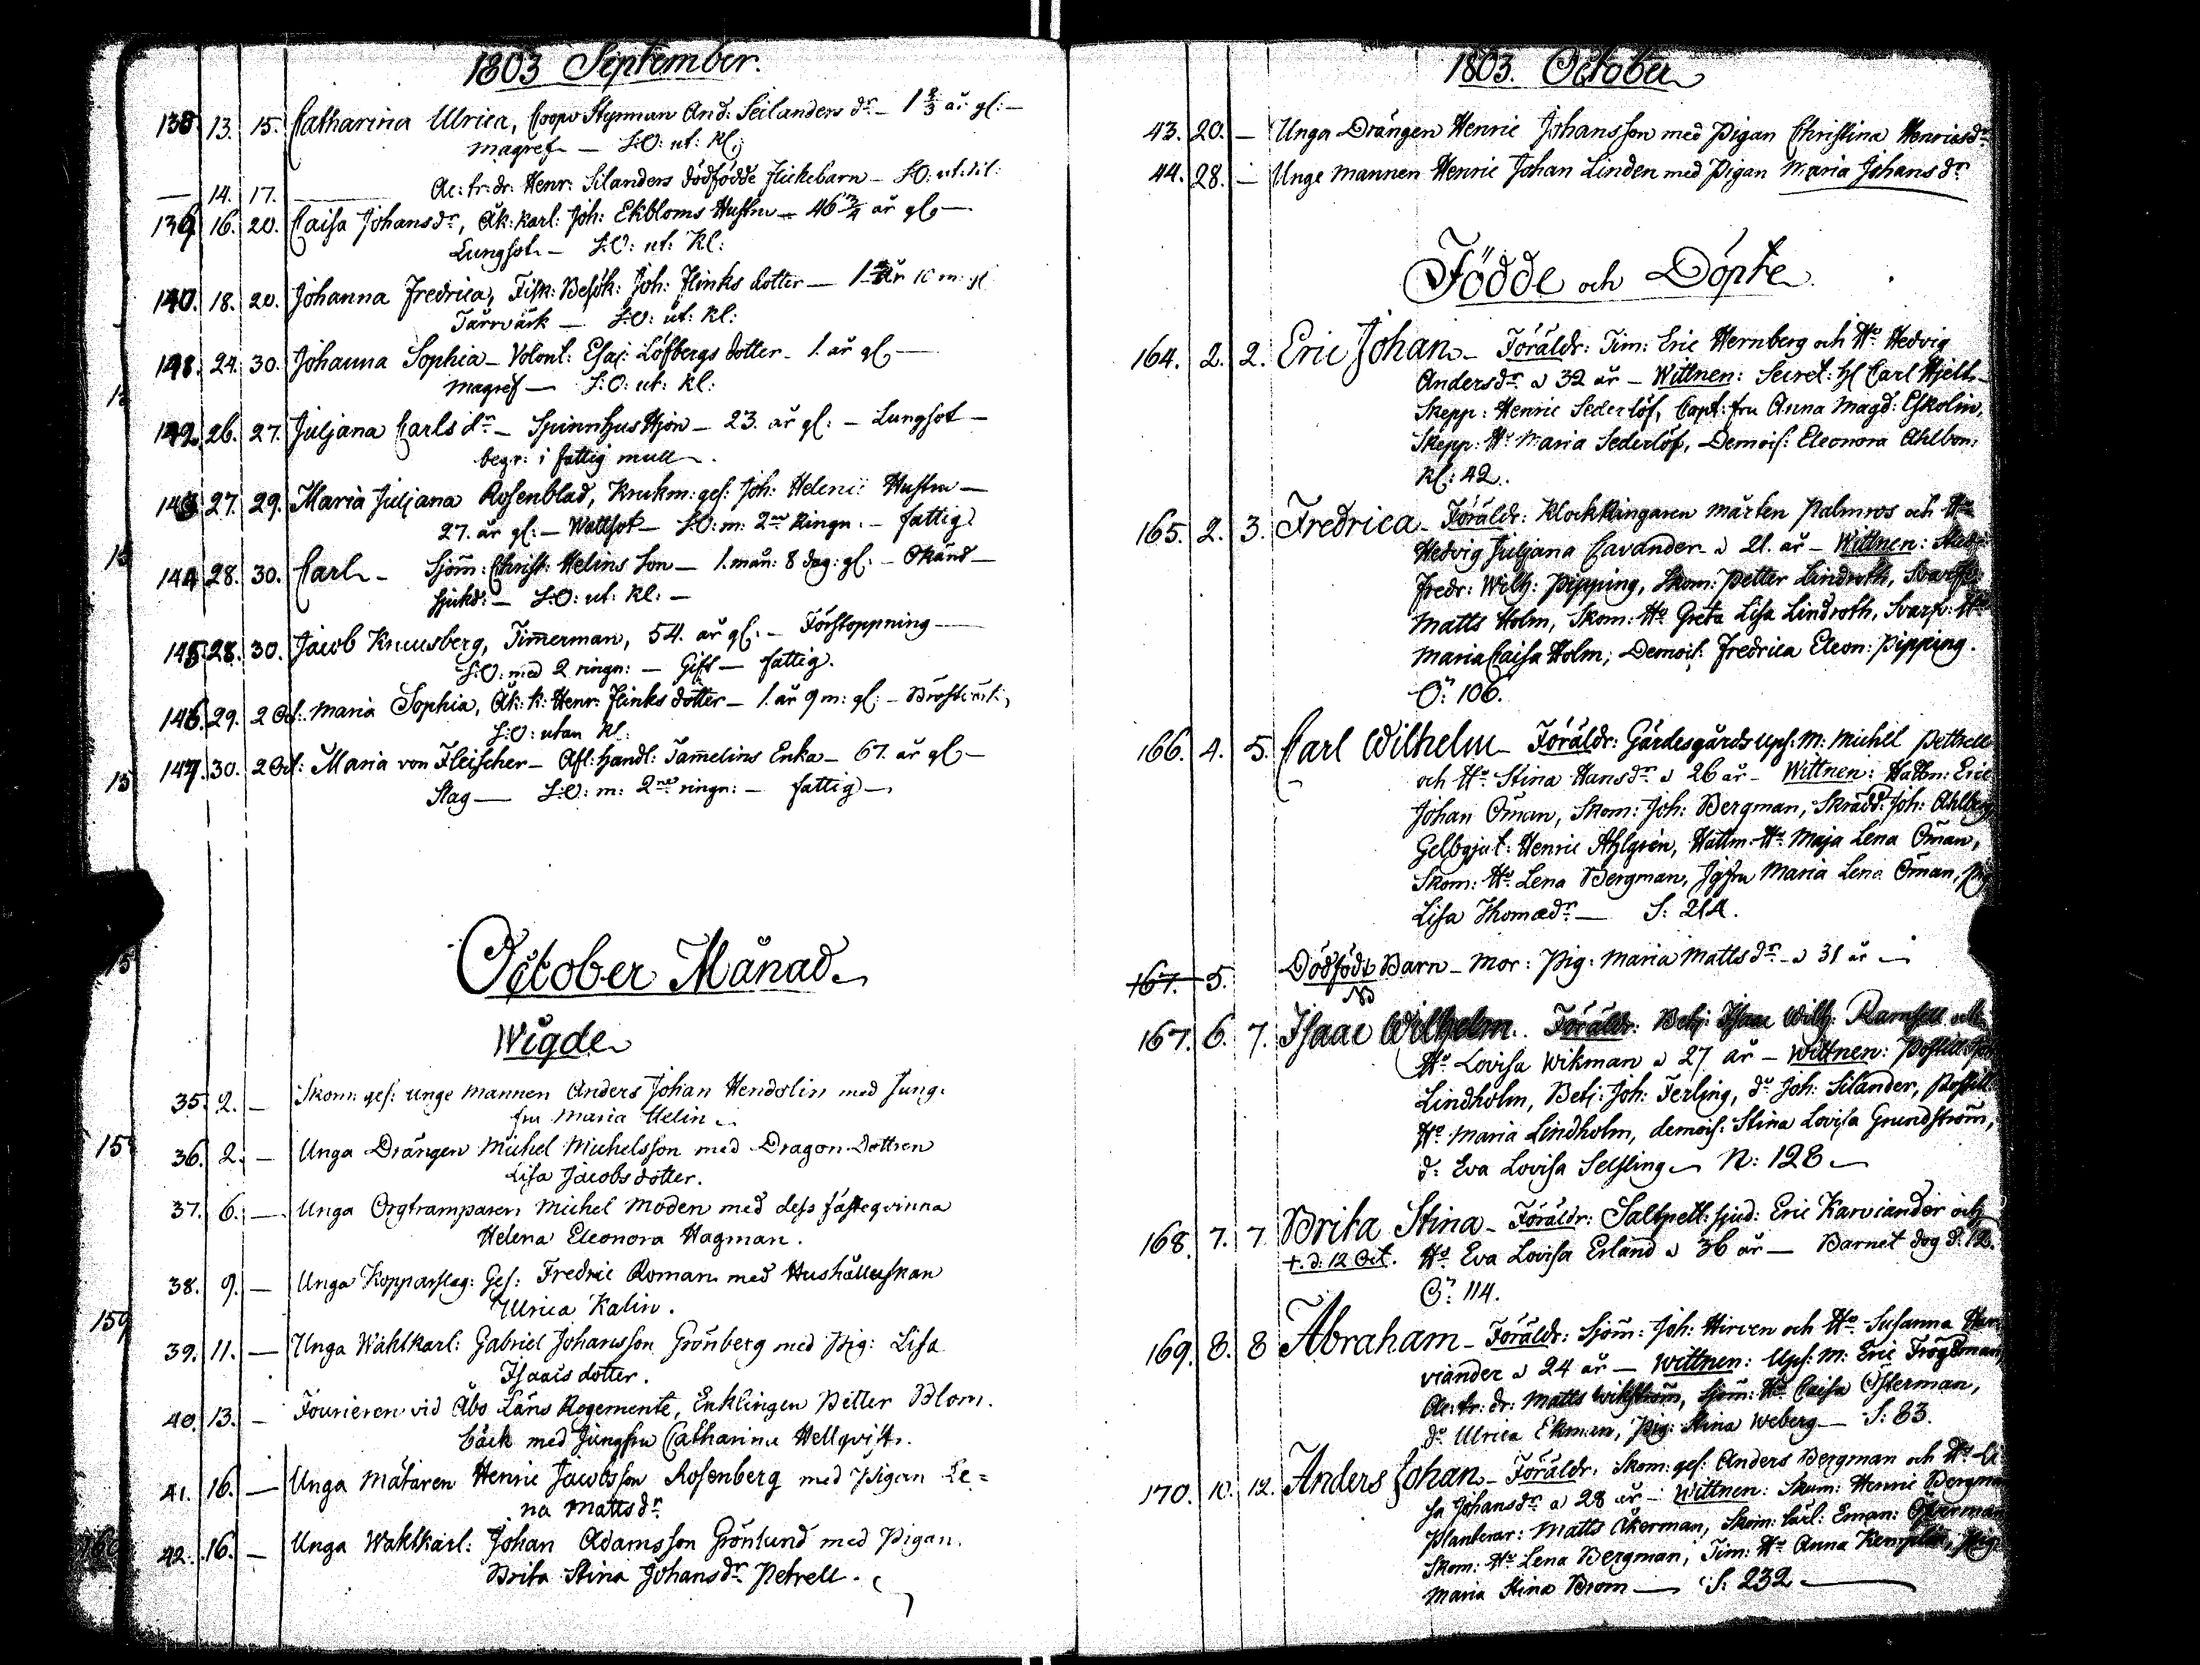 1803 September.
138. 13. 15. Catharina Ulrica, Coopv Styrman And: Seilanders dr. – 1 2/3 år gl: –
Magref – S:O: ut: Kl:
— 14. 17. — Ac: tr: dr: Henr: Silanders dödfödde flickebarn – S:O: ut: kl:
139. 16. 20. Caisa Johansdr, Åk: karl: Joh: Ekbloms Hustru – 46 3/4 år gl. –
Lungsot – S:O: ut: Kl:
140. 18. 20. Johanna Fredrica, Fisk: Besök: Joh: Flinks dotter – 1 år 10 m: gl
Tärrvärk – S:O: ut: Kl:
141. 24. 30. Johanna Sophia – Volont: Esai: Löfbergs dotter – 1. år gl –
Magref – S:O: ut: Kl:
142. 26. 27. Juljana Carlsdr – Spinnhus Hjon – 23. år gl: – Lungsot –
begr: i fattig mull.
143. 27. 29. Maria Juljana Rosenblad, Krukm: ges: Joh: Helenii Hustru –
27. år gl: – Wattsot – S:O: m: 2ne Ringn: – fattig
144. 28. 30. Carl – Sjöm: Christ: Helins Son – 1. mån: 8 dag: gl: – Okänd –
Sjukd: – S:O: ut: Kl: –
145. 28. 30. Jacob Knuusberg, Timerman, 54. år gl. – Förstoppning –
S:O: med 2 ringn: – Gift – fattig.
146. 29. 2 Oct: Maria Sophia, Åk: k: Henr: Flinks dotter – 1. år 9 m: gl: –
S:O: utan Kl:
147. 30. 2 Oct: Maria von Fleischer – Afl: Handl: Tamelins Enka – 67. år gl –
Slag – S:O: m: 2ne ringn: – fattig –
October Månad.
Wigde
35. 2. – Skom: ges: unge mannen Anders Johan Hendolin med Jung-
fru Maria Helin.
36. 2. – Unga Drängen Michel Michelsson med Dragon Dottren
Lisa Jacobsdotter.
37. 6. – Unga Orgtramparen Michel Moden med dess fästeqvinna
Helena Eleonora Hagman.
38. 9. – Unga Kopparslag: Ges: Fredric Roman med Hushållerskan
Ulrica Kalin.
39. 11. – Unga Wahlkarl: Gabriel Johansson Grönberg med Pig: Lisa
Isaacs dotter.
40. 13. – Fourieren vid Åbo Läns Regemente, Enklingen Petter Blom-
bäck med Jungfru Catharina Hellqvist.
41. 16. – Unga Mätaren Henric Jacobsson Rosenberg med Pigan Le=
na Mattsdr.
42. 16. – Unga Wahlkarl: Johan Adamsson Grönlund med Pigan
Brita Stina Johansdr Petrell.
1803. October
43. 20. – Unga Drängen Henric Johansson med Pigan Christina Henricsdr
44. 28. – Unge Mannen Henric Johan Linden med Pigan Maria Johansdr
Födde och Döpte.
164. 2. 2. Eric Johan – Föräldr: Tim: Eric Hernberg och Ho Hedvig
Andersdr a 32 år – Wittnen: Secret: H. Carl Hjelt –
Skepp: Henric Sederlöf, Capt: fru Anna Magd: Eskolin,
Skepp: Ho Maria Sederlöf, Demois: Eleonora Ahlbom:
Kl: 42.
165. 2. 3. Fredrica – Föräldr: Klockringaren Mårten Palmros och Ho
Hedvig Juljana Cavander a 21. år – Wittnen:
Fredr: Wilh: Pipping, Skom: Petter Lindroth,
Matts Holm, Skom: Ho Greta Lisa Lindroth, Svarfv: Ho
Maria Caisa Holm, Demois: Fredrica Eleon: Pipping.
Ö: 106.
166. 4. 5. Carl Wilhelm – Föräldr: Gärdesgårds Ups: M: Michel Pettrell
och Ho Stina Hansdr a 26 år – Wittnen: Hattm: Eric
Johan Öman, Skom: Joh: Bergman, Skrädd: Joh: Ahlberg,
Gelbgjut: Henric Ahlgren, Hattm: Ho Maja Lena Öman,
Skom: Ho Lena Bergman, Jgfru Maria Lena Öman, Pig
Lisa Thomædr – S: 214.
167. 5. Dödfödt Barn – Mor: Pig: Maria Mattsdr – a 31 år –
167. 6. 7. Isaac Wilhelm. Föräldr: Betj: Isaac Wilh: Ramsell och
Ho Lovisa Wikman a 27 år – Wittnen: Postill:
Lindholm, Betj: Joh: Ferling, do Joh: Silander, Postill:
Ho Maria Lindholm, demois: Stina Lovisa Grundström,
d: Eva Lovisa Selsling – N: 128 –
168. 7. 7 Brita Stina – Föräldr: Saltpett: sjud: Eric Karviander och
†. d. 12 Oct. Ho Eva Lovisa Erland a 36 år – Barnet dog d. 12.
Ö: 114.
169. 8. 8 Abraham – Föräldr: Sjöm: Joh: Hirven och Ho Susanna Kar-
viander a 24 år – Wittnen: Ups: M: Eric Trögdman,
Ac: tr: dr: Matts Wikström, Sjöm: Ho Caisa Österman,
do Ulrica Ekman, Pig: Stina Weberg – S: 83.
170. 10. 12. Anders Johan – Föräldr: Skom: ges: Anders Bergman och Ho Li-
sa Johansdr a 28 år – Wittnen: Skom: Henric Bergman
Planterar: Matts Åkerman, Skom: lärl: Eman: Österman
Skom: Ho Lena Bergman, Tim: Ho Anna Pig:
Maria Stina Brom – S: 232 –